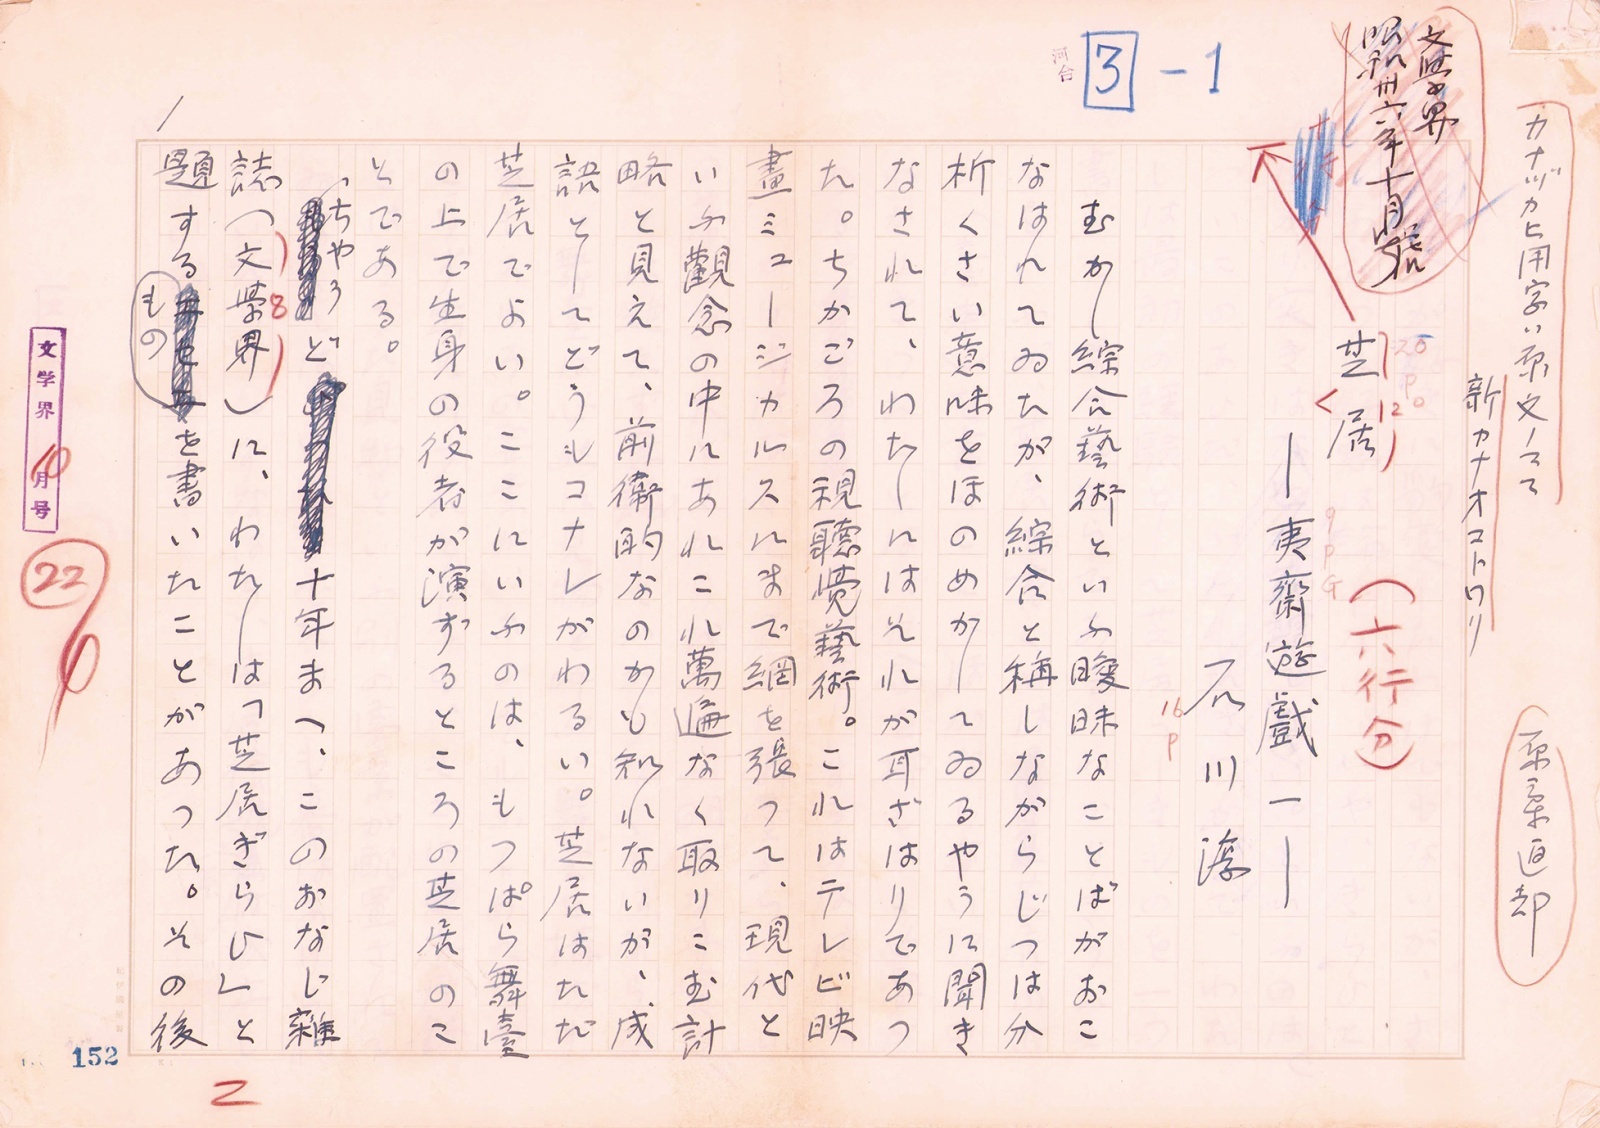 カナヅカヒ用字ハ原文ノママ
新カナオコトワリ
原稿返却
文學界
昭和卅六年十月号
河合
3-1
芝居
(六行分)
12
9PG
―夷齋遊戯一―
石川淳
16P
むかし綜合藝術といふ曖昧なことばがおこ
なはれてゐたが、綜合と稱しながらじつは分
析くさい意味をほのめかしてゐるやうに聞き
なされて、わたしにはそれが耳ざはりであつ
た。ちかごろの視聽覚藝術。これはテレビ映
畫ミュージカルスにまで網を張つて、現代と
いふ觀念の中にあれこれ萬遍なく取りこむ計
略と見えて、前衛的なのかも知れないが、成
語としてどうもコナレがわるい。芝居はただ
芝居でよい。ここにいふのは、もつぱら舞臺
の上で生身の役者が演ずるところの芝居のこ
とである。
ちやうど十年まへ、このおなじ雜
誌(文學界)に、わたしは「芝居ぎらひ」と
8
題するものを書いたことがあつた。その後
文学界10月号
22
6
152
2